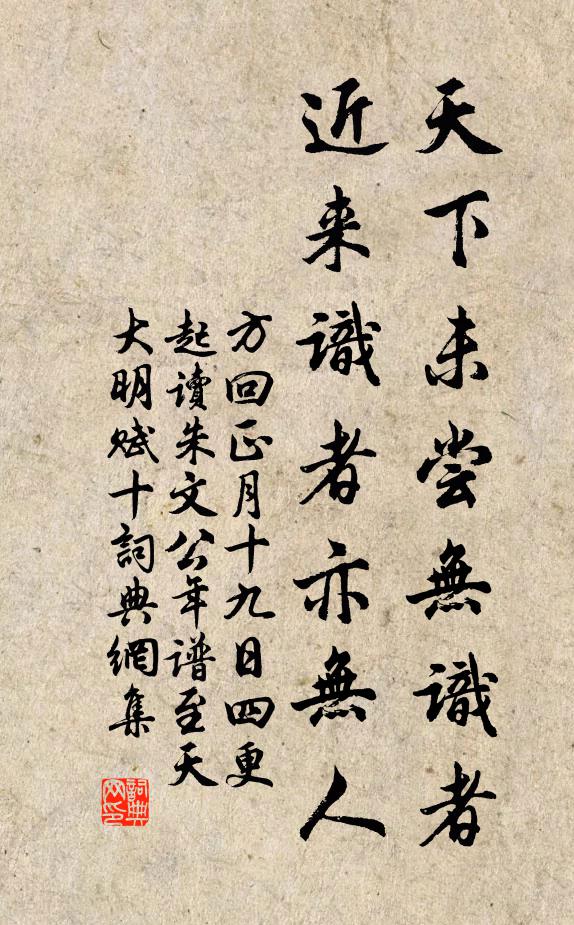 天下未尝無識者
近来識者亦無人
方回正月十九日四更
起讀朱文公年谱至天
大明赋十詞典網集
詞典网印